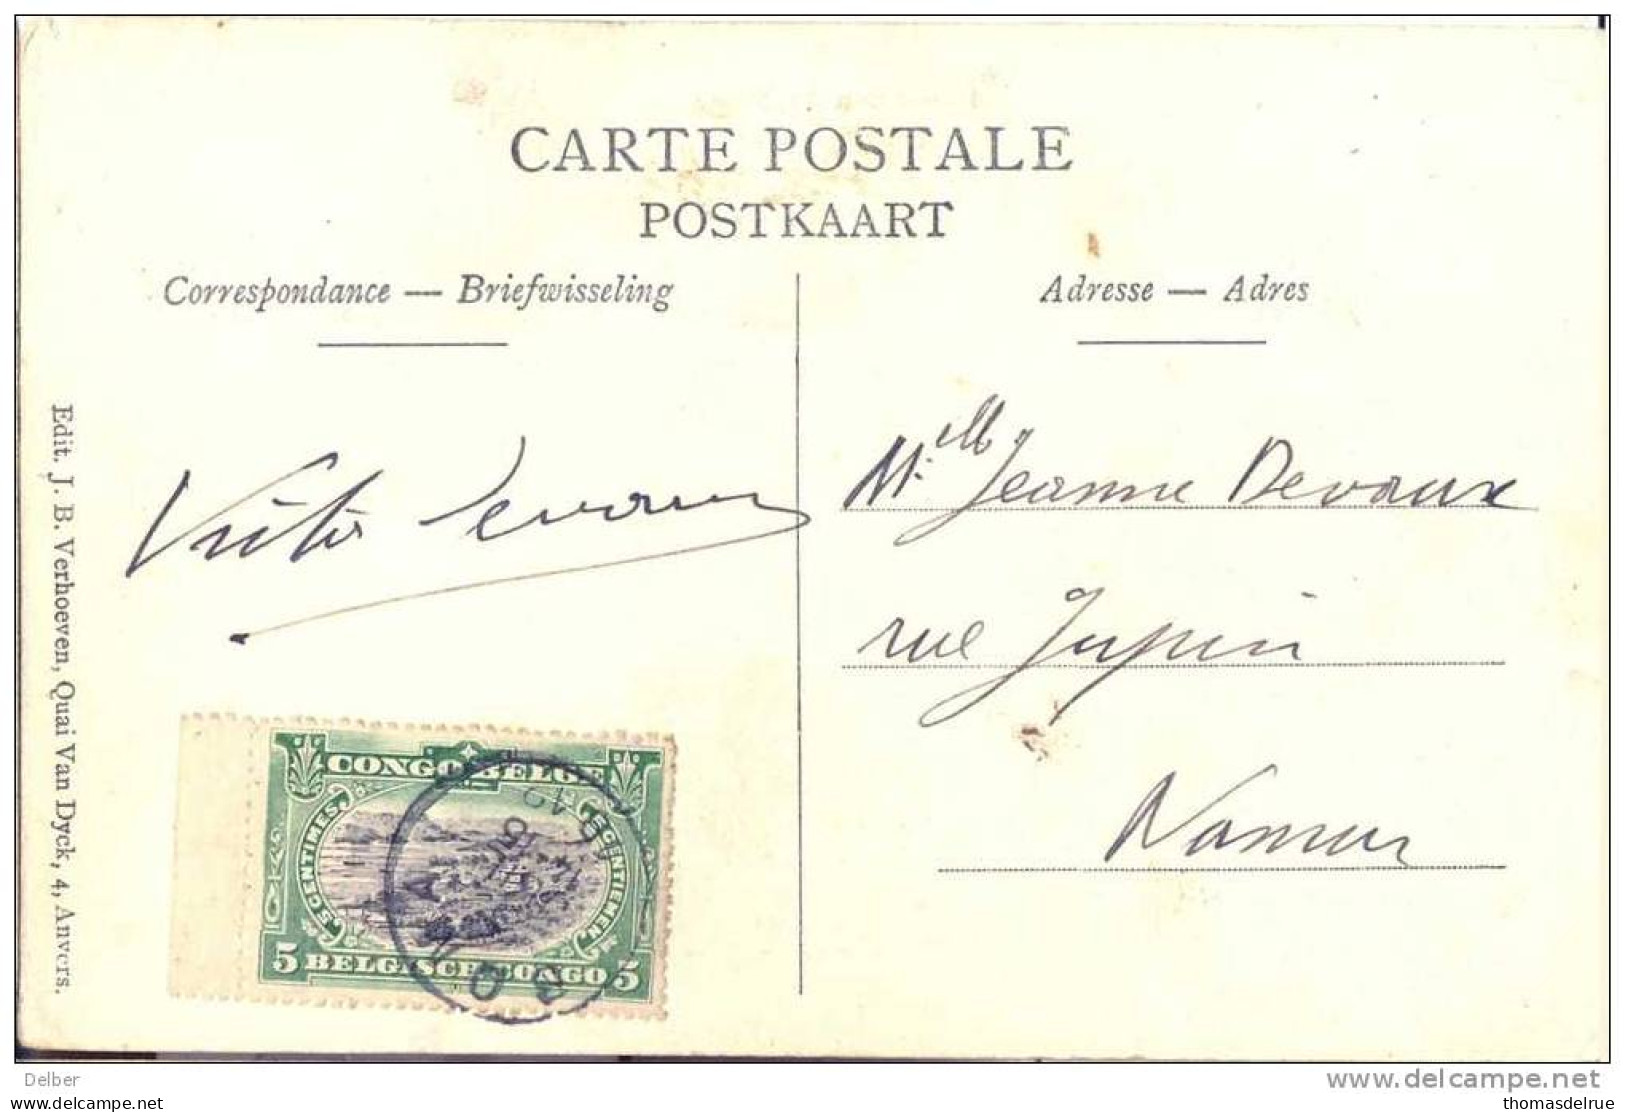 CARTE POSTALE
POSTKAART
Correspondance — Briefwisseling
Adresse — Adres
Edit. J. B. Verhoeven, Quai Van Dyck, 4, Anvers.
Victor Devaux
M.elle Jeanne Devaux
rue Jupin
Namur
CONGO BELGE
5 CENTIMES.
5 CENTIEMEN.
5 BELGISCH CONGO 5
BOMA
Delber
www.delcampe.net
www.delcampe.com
thomasdelrue